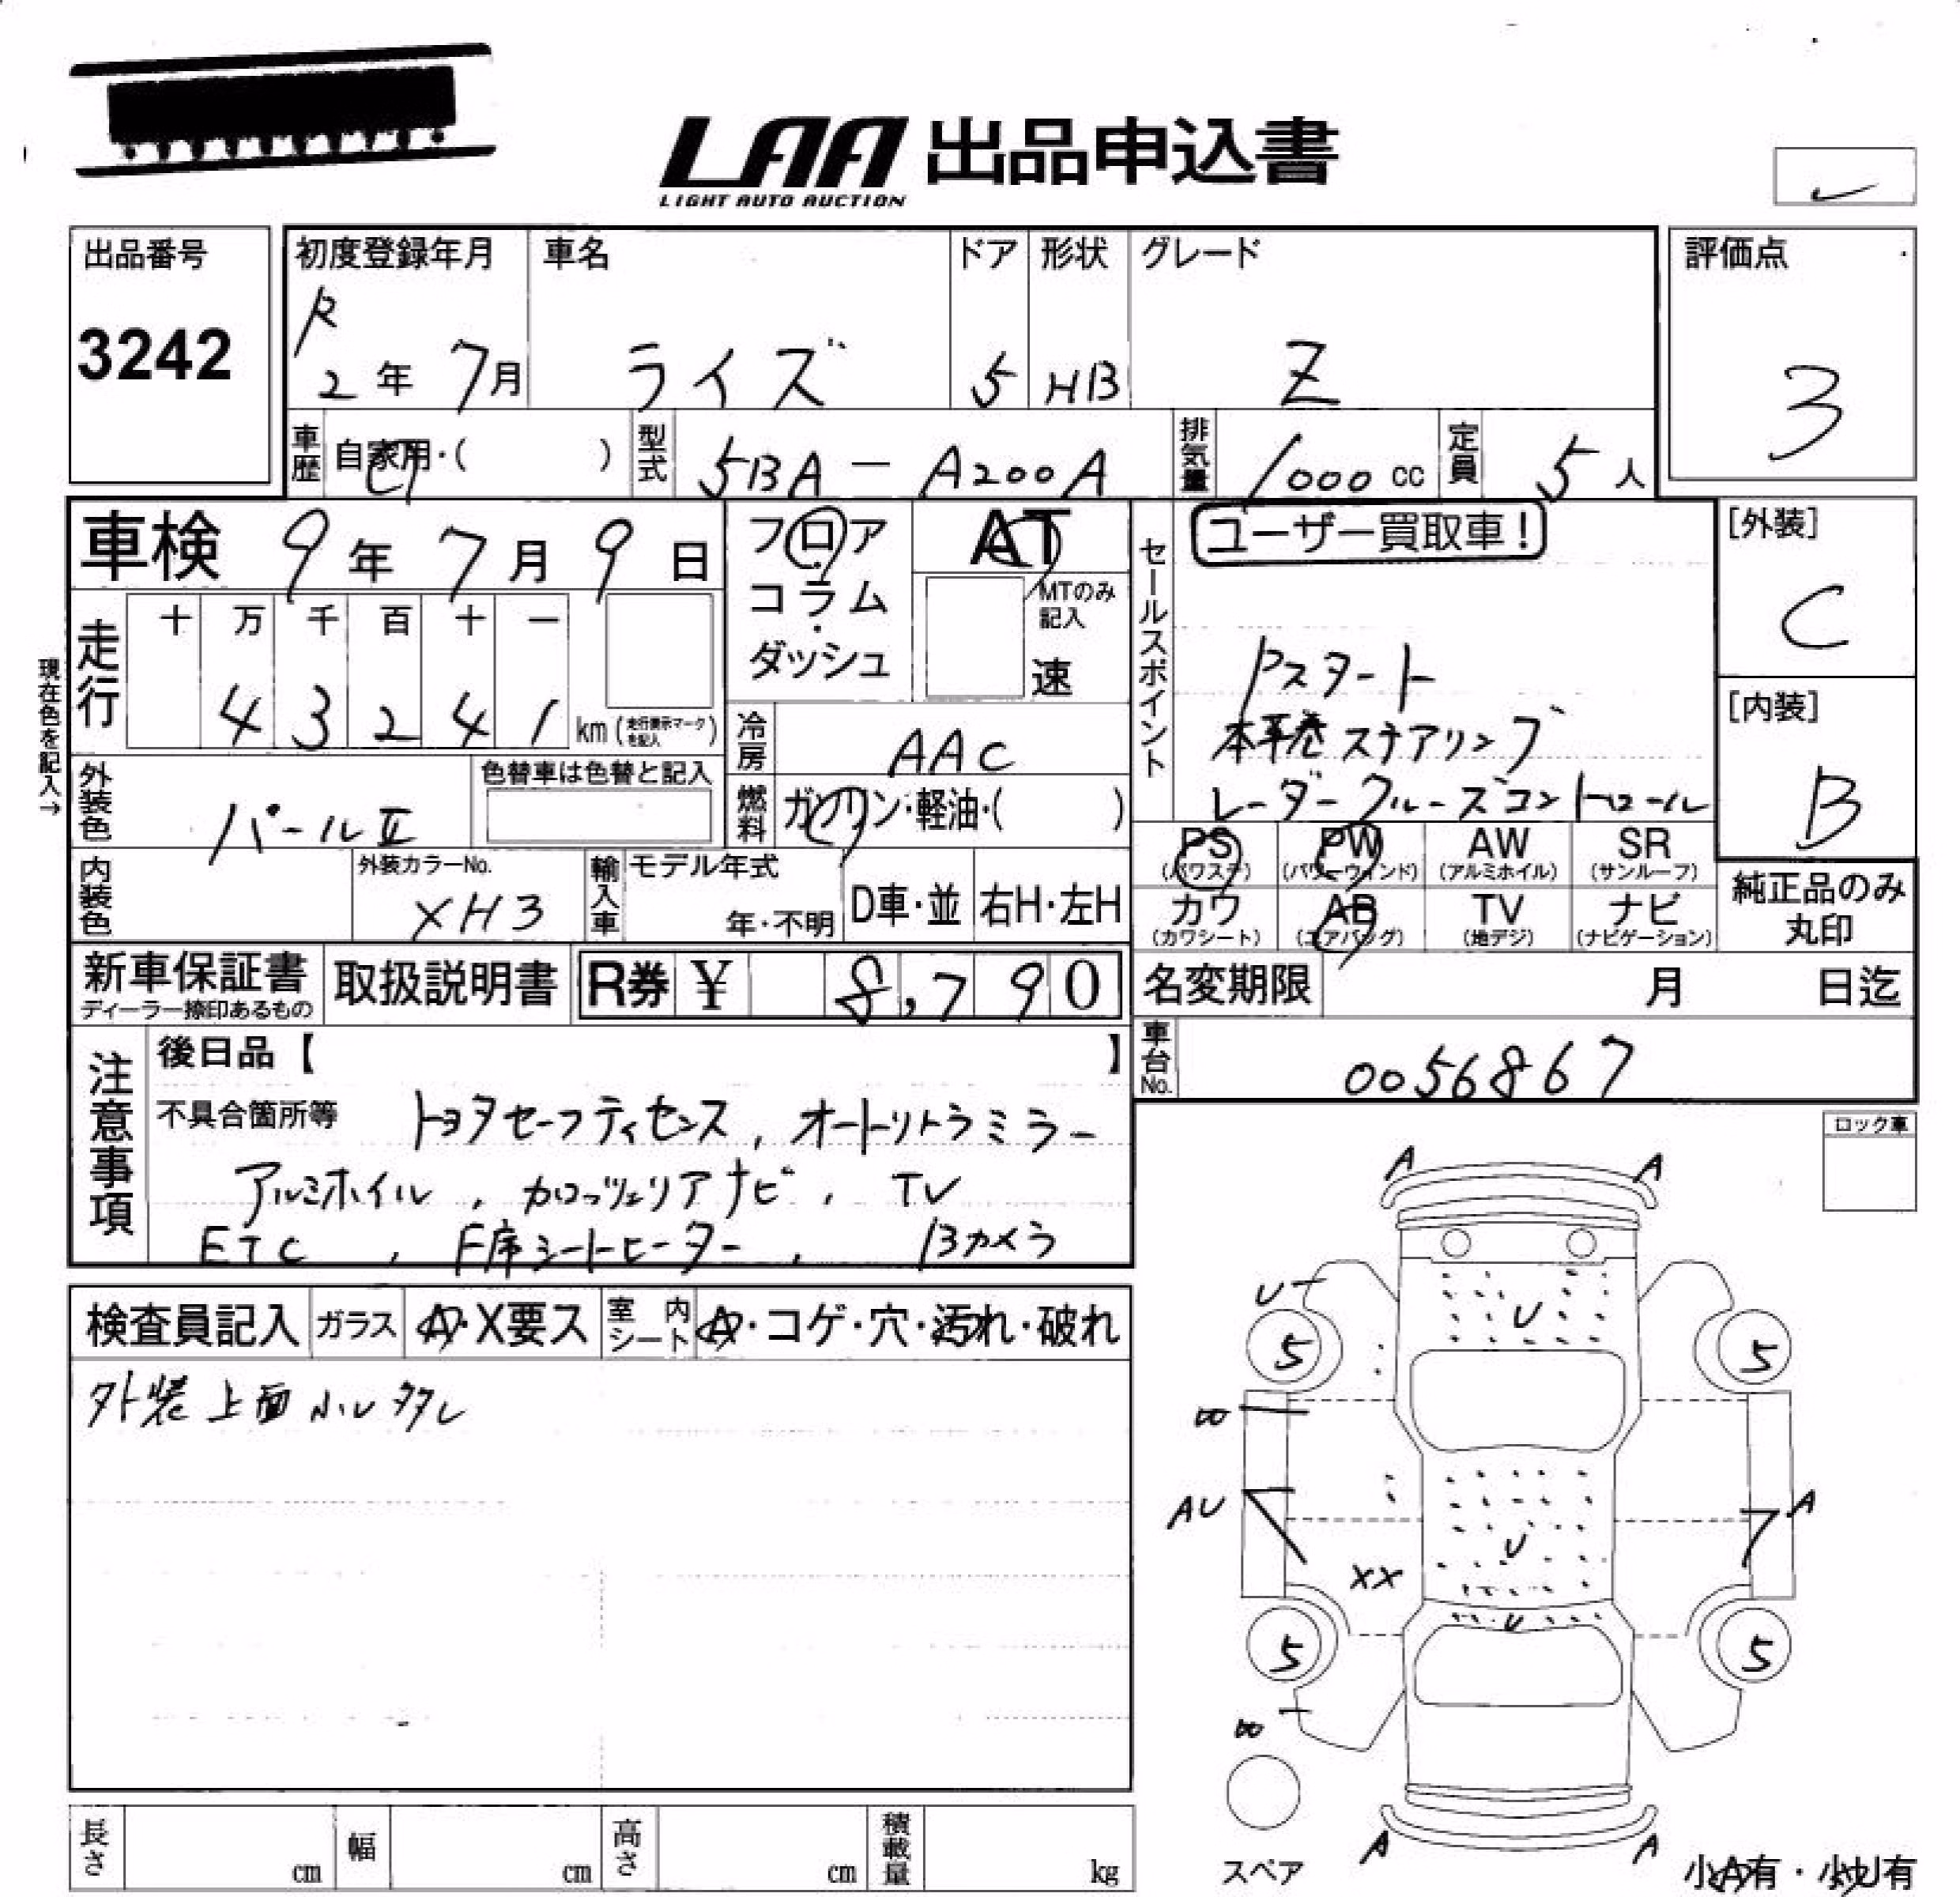 LAA 出品申込書
LIGHT AUTO AUCTION
出品番号
3242
初度登録年月
R
2年 7月
車名
ライズ
ドア
5
形状
HB
グレード
Z
評価点
3
車歴 自家用・( )
型式 5BA-A200A
排気量 1000 cc
定員 5人
車検 9年 7月 9日
フロア
コラム
・
ダッシュ
AT
MTのみ
記入
速
セールスポイント
ユーザー買取車!
Pスタート
本革巻ステアリング
レーダークルーズコントロール
[外装]
C
[内装]
B
現在色を記入→
走行
十 万 千 百 十 一
4 3 2 4 1 km (走行表示マークを記入)
冷房 AAC
外装色 パールII
色替車は色替と記入
燃料 ガソリン・軽油・( )
PS (パワステ)
PW (パワーウィンド)
AW (アルミホイル)
SR (サンルーフ)
内装色
外装カラーNo.
XH3
輸入車
モデル年式
年・不明
D車・並
右H・左H
カワ (カワシート)
AB (エアバッグ)
TV (地デジ)
ナビ (ナビゲーション)
純正品のみ
丸印
新車保証書
ディーラー捺印あるもの
取扱説明書
R券 ¥ 8,790
名変期限 月 日迄
注意事項
後日品【 】
不具合箇所等 トヨタセーフティセンス, オートリトラミラー
アルミホイル, カロッツェリアナビ, TV
ETC, F席シートヒーター, Bカメラ
車台No. 0056867
ロック車
検査員記入
ガラス A・X要ス
室内シート A・コゲ・穴・汚れ・破れ
外装上面小U多多し
A A
U
U
5 5
∞
AU A
U
XX
U
5 5
∞
A A
スペア
小A有・小U有
長さ cm
幅 cm
高さ cm
積載量 kg